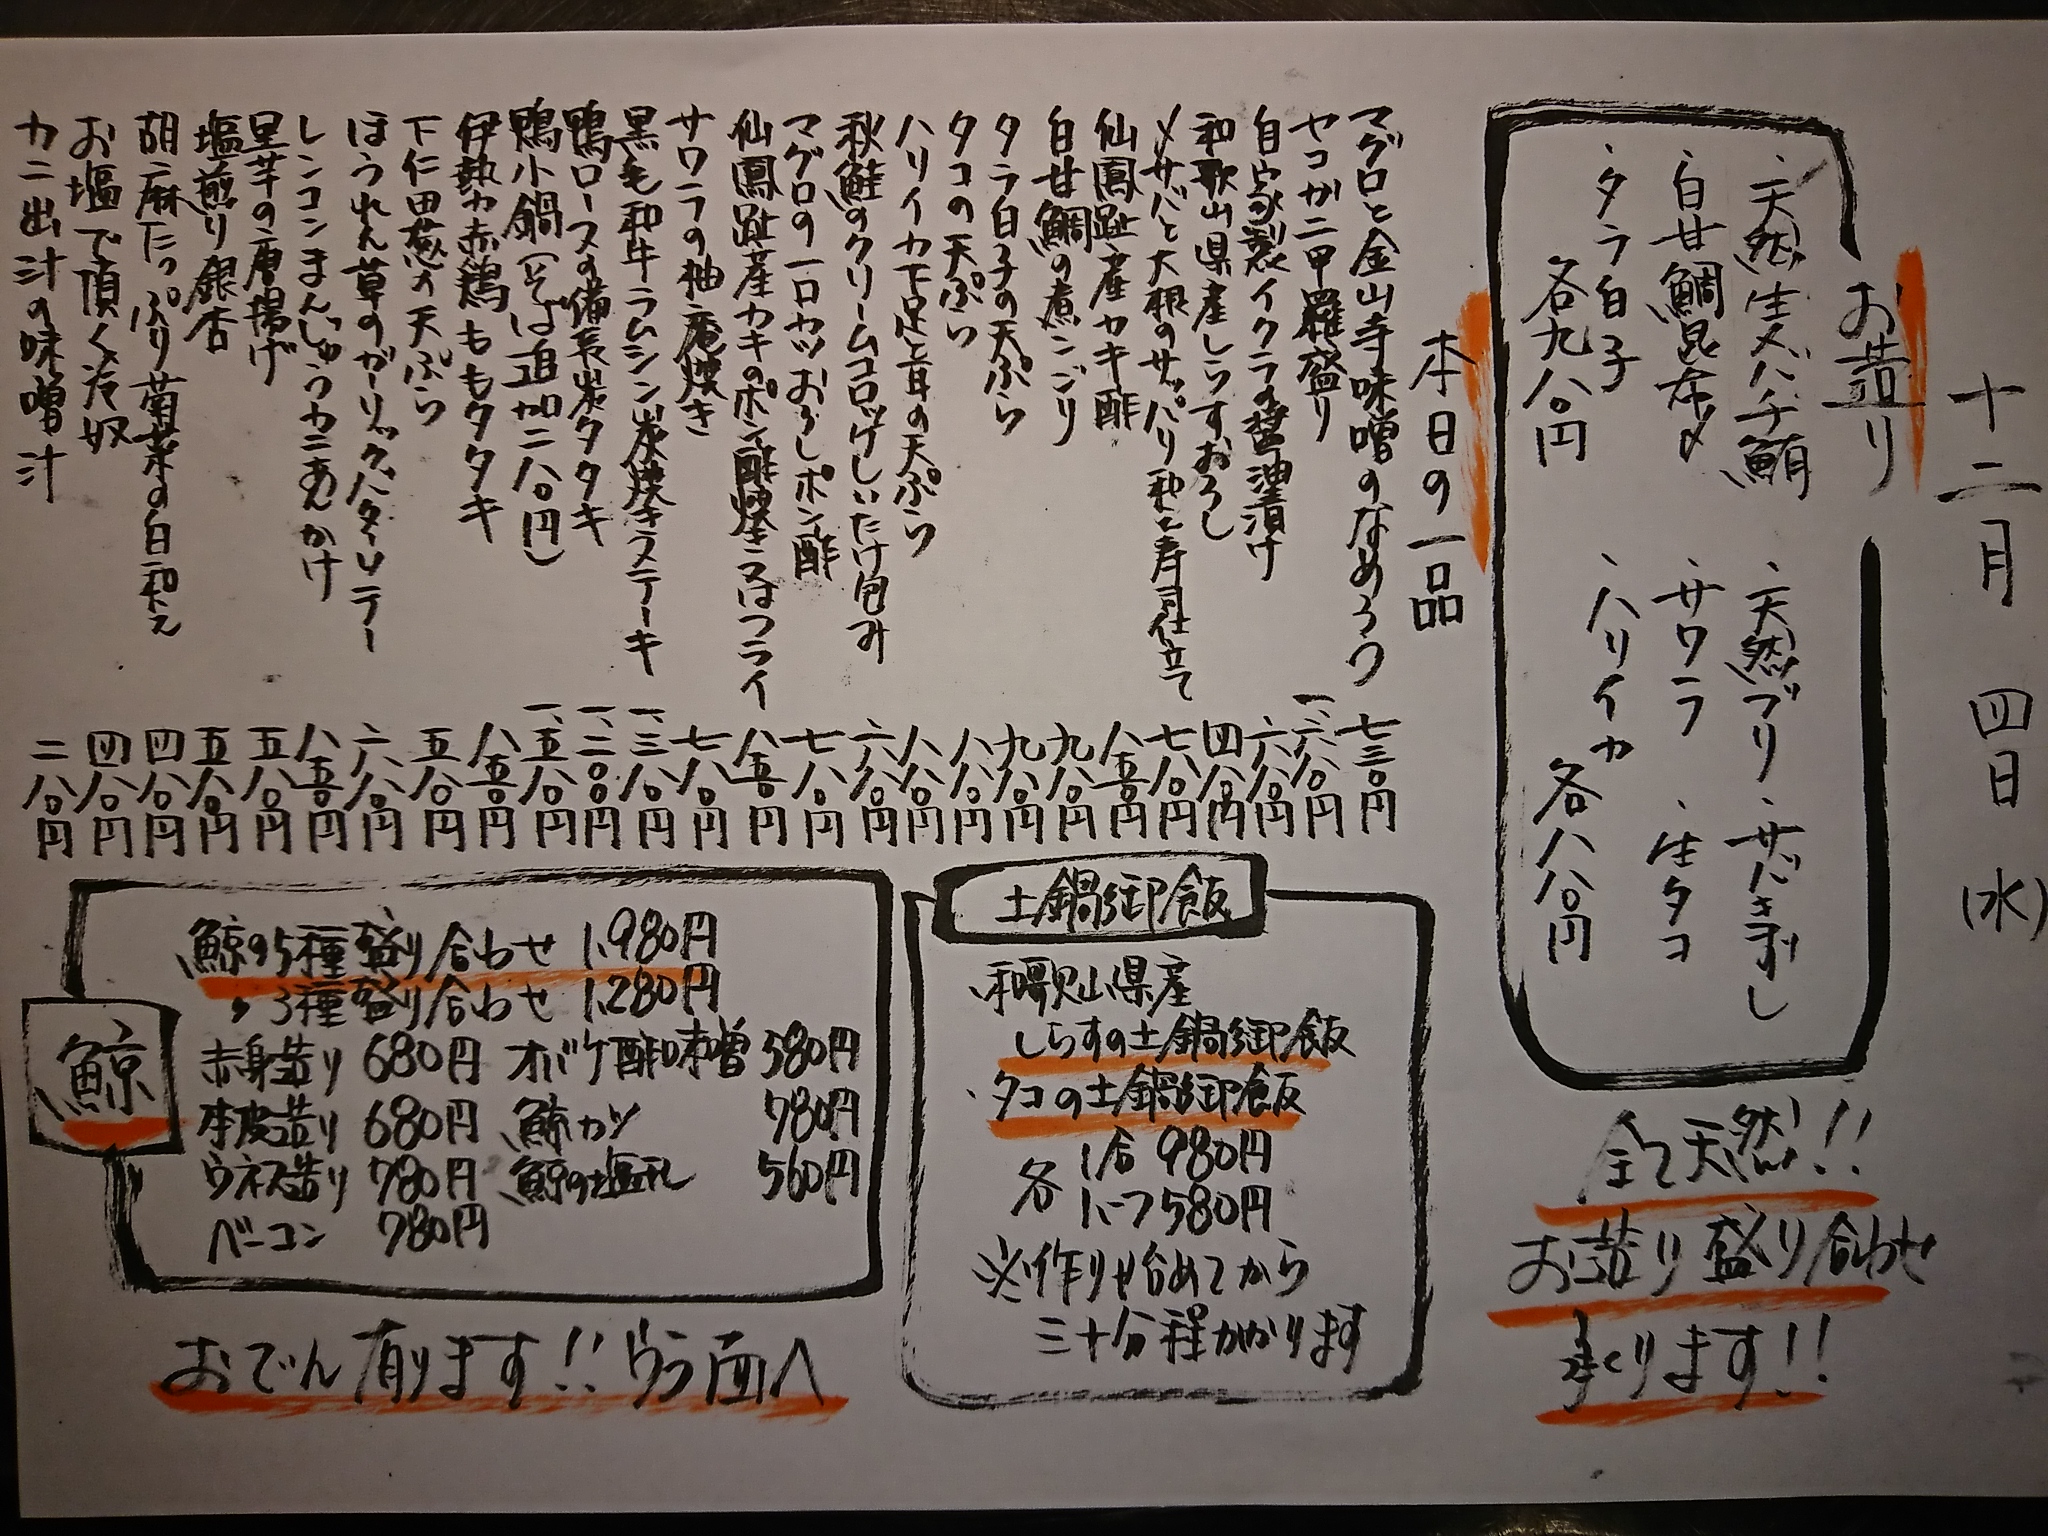 十二月 四日(水)
お造り
・天然生メバチ鮪
・白甘鯛昆布〆
・タラ白子
各九八〇円
・天然ブリ
・サバきずし
・サワラ
・生タコ
・ハリイカ
各八八〇円
全て天然!!
お造り盛り合わせ
承ります!!
本日の一品
マグロと金山寺味噌のなめろう 七三〇円
ヤコガニ甲羅盛り 一、六八〇円
自家製イクラの醤油漬け 六八〇円
和歌山県産しらすおろし 四八〇円
〆サバと大根のサッパリ和え寿司仕立て 七八〇円
仙鳳趾産カキ酢 八五〇円
白甘鯛の煮こごり 九八〇円
タラ白子の天ぷら 九八〇円
タコの天ぷら 八八〇円
ハリイカ下足と茸の天ぷら 八八〇円
秋鮭のクリームコロッケしいたけ包み 六八〇円
マグロの一口カツおろしポン酢 七八〇円
仙鳳趾産カキのポン酢焼き又はフライ 八五〇円
サワラの柚庵焼き 七八〇円
黒毛和牛ラムシン炭焼きステーキ 一、三八〇円
鴨ロースの備長炭タタキ 一、二〇〇円
鴨小鍋(そば追加二八〇円) 一、五八〇円
伊勢赤鶏ももタタキ 八五〇円
下仁田葱の天ぷら 五八〇円
ほうれん草のガーリックバターソテー 六八〇円
レンコンまんじゅうカニあんかけ 八五〇円
里芋の唐揚げ 五八〇円
塩煎り銀杏 五八〇円
胡麻たっぷり菊菜の白和え 四八〇円
お塩で頂く冷奴 四八〇円
カニ出汁の味噌汁 二八〇円
土鍋御飯
和歌山県産
しらすの土鍋御飯
・タコの土鍋御飯
各 1合 980円
1ハーフ 580円
※作り始めてから
三十分程かかります
鯨
鯨の5種盛り合わせ 1,980円
〃 3種盛り合わせ 1,280円
赤身造り 680円 オバケ酢味噌 580円
本皮造り 680円 鯨カツ 780円
ウネス造り 780円 鯨の塩ユデ 560円
ベーコン 780円
おでん有ります!!ウラ面へ